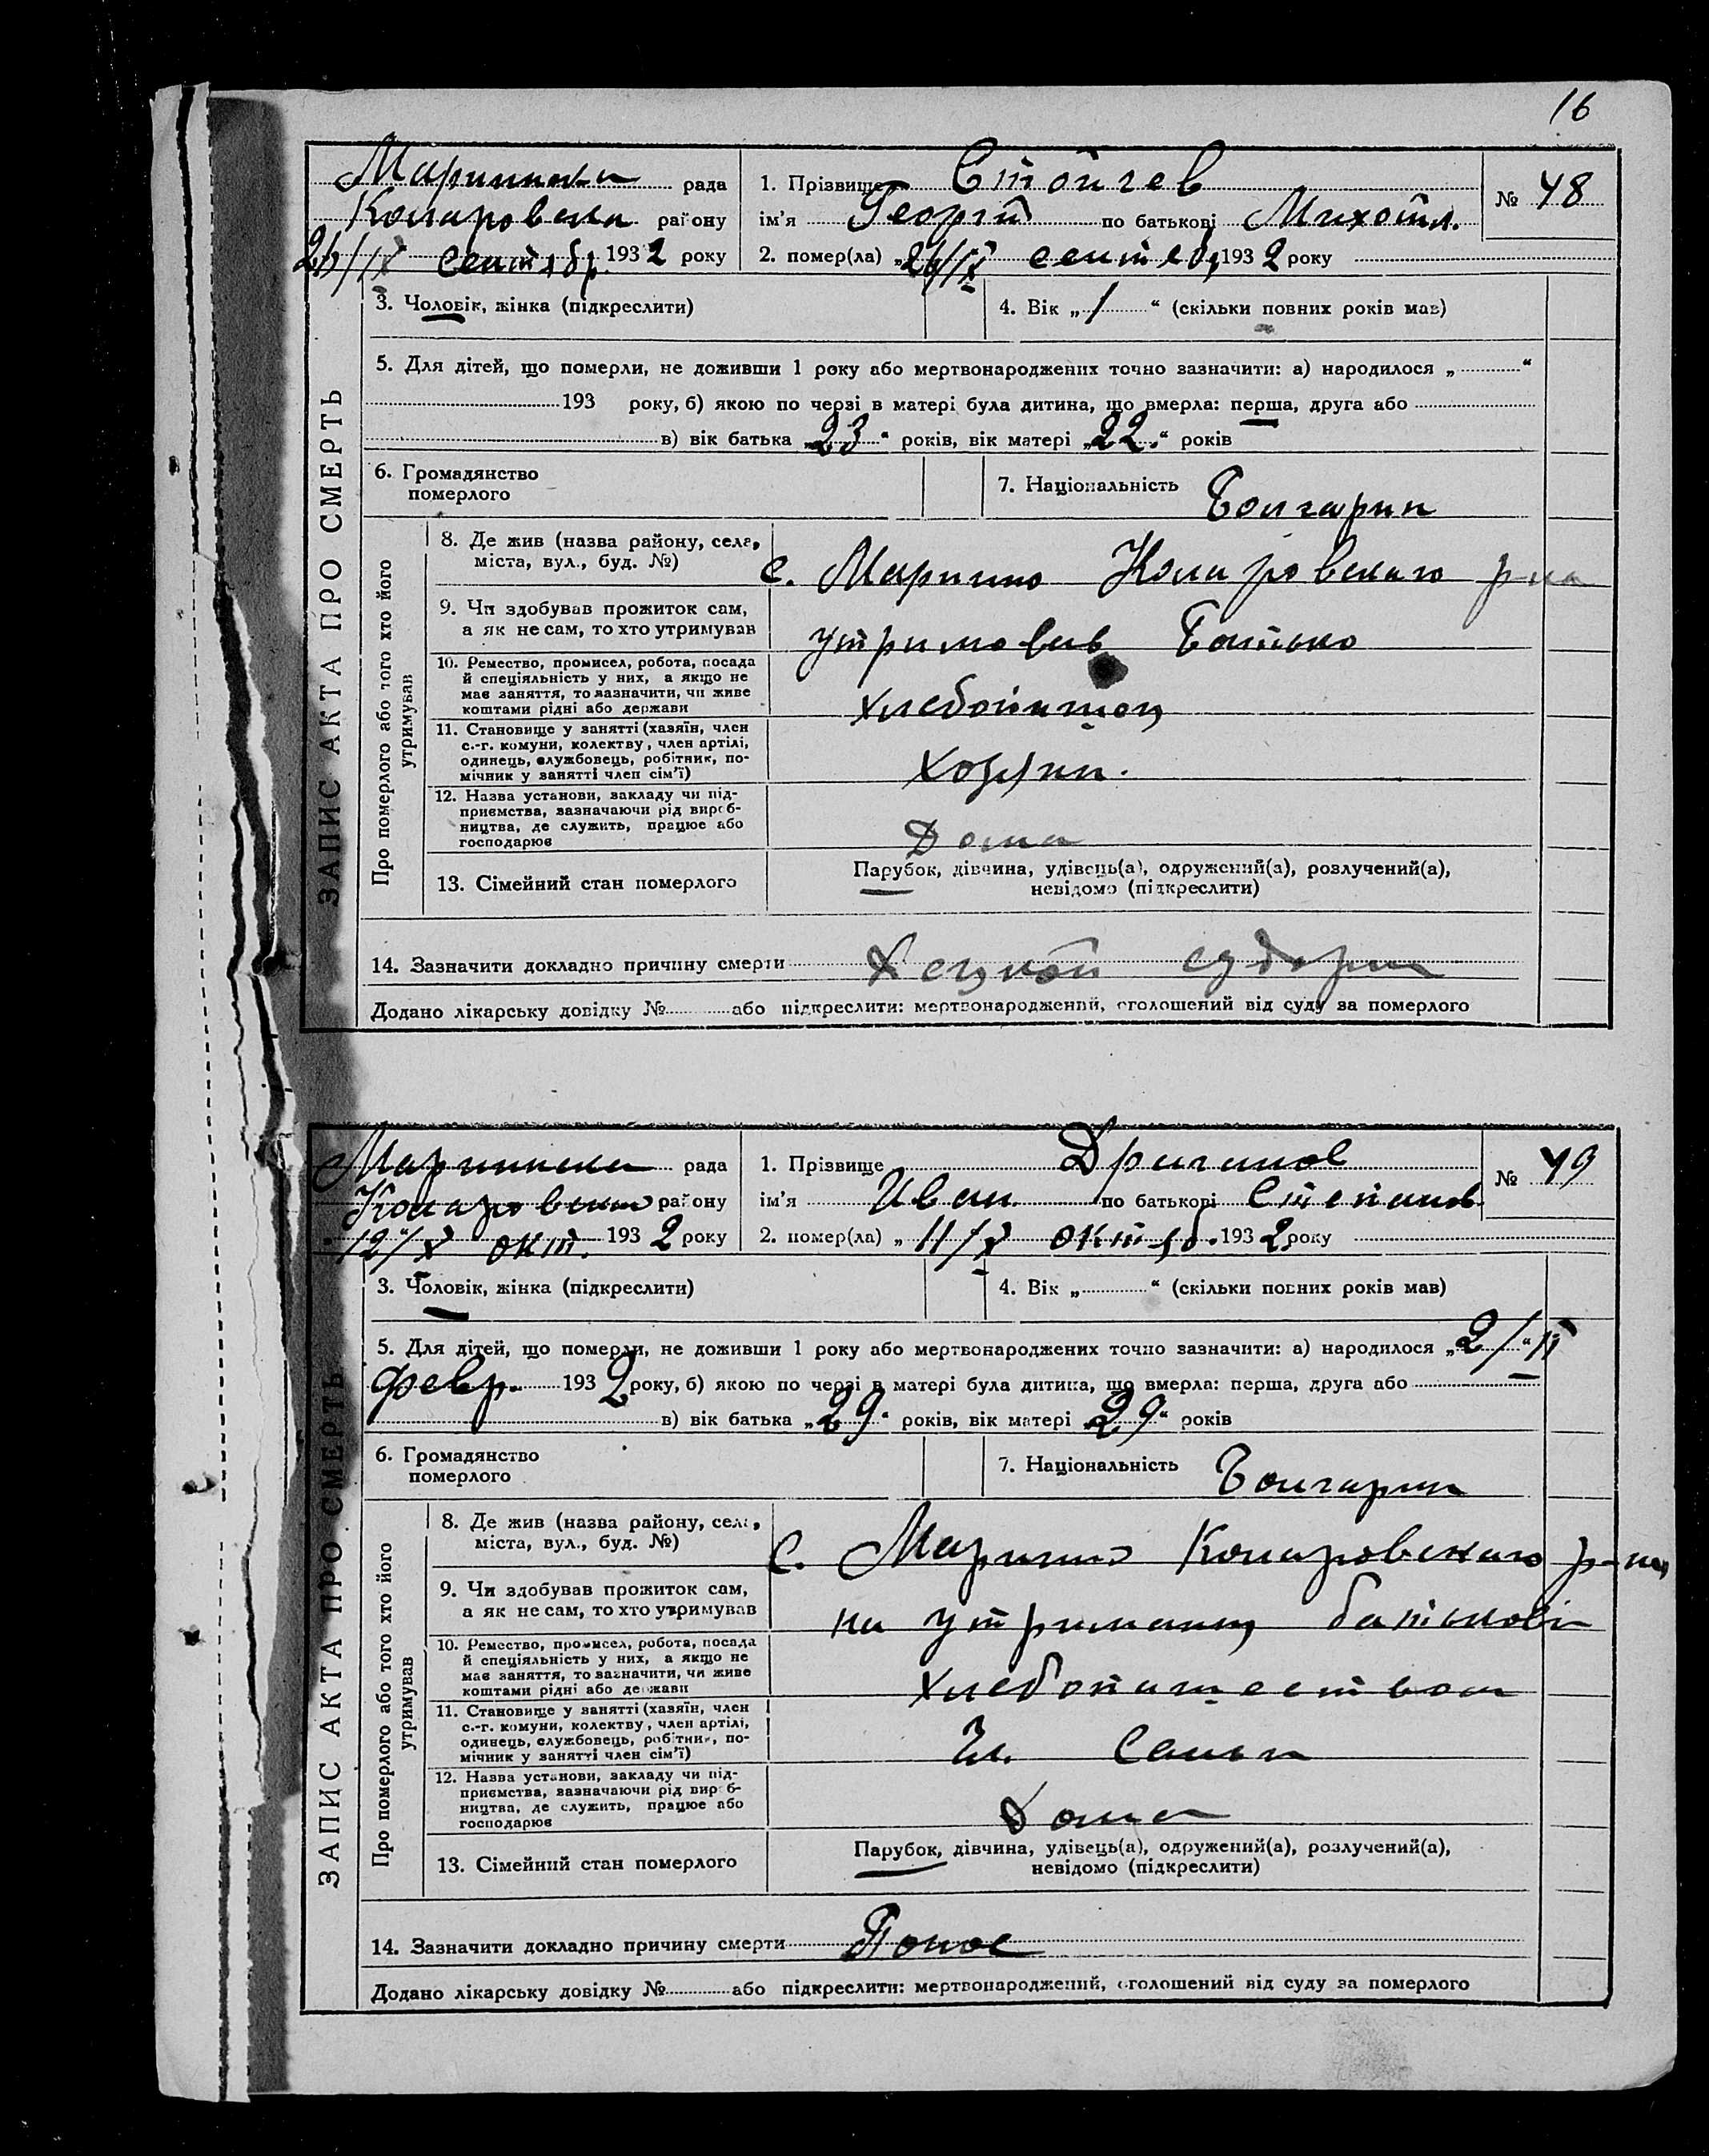 16
ЗАПИС АКТА ПРО СМЕРТЬ
рада
району
26/IX сентябр. 1932 року
1. Прізвище Стойчев
ім’я Георгий по батькові Михайл.
№ 48
2. помер(ла) „26/IX сентяб, 1932 року
3. Чоловік, жінка (підкреслити)
4. Вік „1“ (скільки повних років мав)
5. Для дітей, що померли, не доживши 1 року або мертвонароджених точно зазначити: а) народилося „ “
193 року, б) якою по черзі в матері була дитина, що вмерла: перша, друга або
в) вік батька „23“ років, вік матері „22“ років
6. Громадянство
померлого
7. Національність Болгарин
Про померлого або того хто його
утримував
8. Де жив (назва району, села,
міста, вул., буд. №)
с. Марино Коларовского р-на
9. Чи здобував прожиток сам,
а як не сам, то хто утримував
утримовив Батько
10. Ремество, промисел, робота, посада
й спеціяльність у них, а якщо не
має заняття, то зазначити, чи живе
коштами рідні або держави
11. Становище у занятті (хазяїн, член
с.-г. комуни, колективу, член артілі,
одинець, службовець, робітник, по-
мічник у занятті член сім’ї)
12. Назва установи, закладу чи під-
приємства, зазначаючи рід вироб-
ництва, де служить, працює або
господарює
Дома
13. Сімейний стан померлого
Парубок, дівчина, удівець(а), одружений(а), розлучений(а),
невідомо (підкреслити)
14. Зазначити докладно причину смерти
Додано лікарську довідку № або підкреслити: мертвонароджений, оголошений від суду за померлого
ЗАПИС АКТА ПРО СМЕРТЬ
рада
району
12/X окт. 1932 року
1. Прізвище Драганов
ім’я Иван по батькові Степанов
№ 49
2. помер(ла) „11/X октяб. 1932 року
3. Чоловік, жінка (підкреслити)
4. Вік „ “ (скільки повних років мав)
5. Для дітей, що померли, не доживши 1 року або мертвонароджених точно зазначити: а) народилося „2/“II
февр. 1932 року, б) якою по черзі в матері була дитина, що вмерла: перша, друга або
в) вік батька „29“ років, вік матері „29“ років
6. Громадянство
померлого
7. Національність Болгарин
Про померлого або того хто його
утримував
8. Де жив (назва району, села,
міста, вул., буд. №)
с. Марино Коларовского р-на
9. Чи здобував прожиток сам,
а як не сам, то хто утримував
на
10. Ремество, промисел, робота, посада
й спеціяльність у них, а якщо не
має заняття, то зазначити, чи живе
коштами рідні або держави
Хлебопашеством
11. Становище у занятті (хазяїн, член
с.-г. комуни, колективу, член артілі,
одинець, службовець, робітник, по-
мічник у занятті член сім’ї)
Чл. Семьи
12. Назва установи, закладу чи під-
приємства, зазначаючи рід вироб-
ництва, де служить, працює або
господарює
Дома
13. Сімейний стан померлого
Парубок, дівчина, удівець(а), одружений(а), розлучений(а),
невідомо (підкреслити)
14. Зазначити докладно причину смерти Понос
Додано лікарську довідку № або підкреслити: мертвонароджений, оголошений від суду за померлого